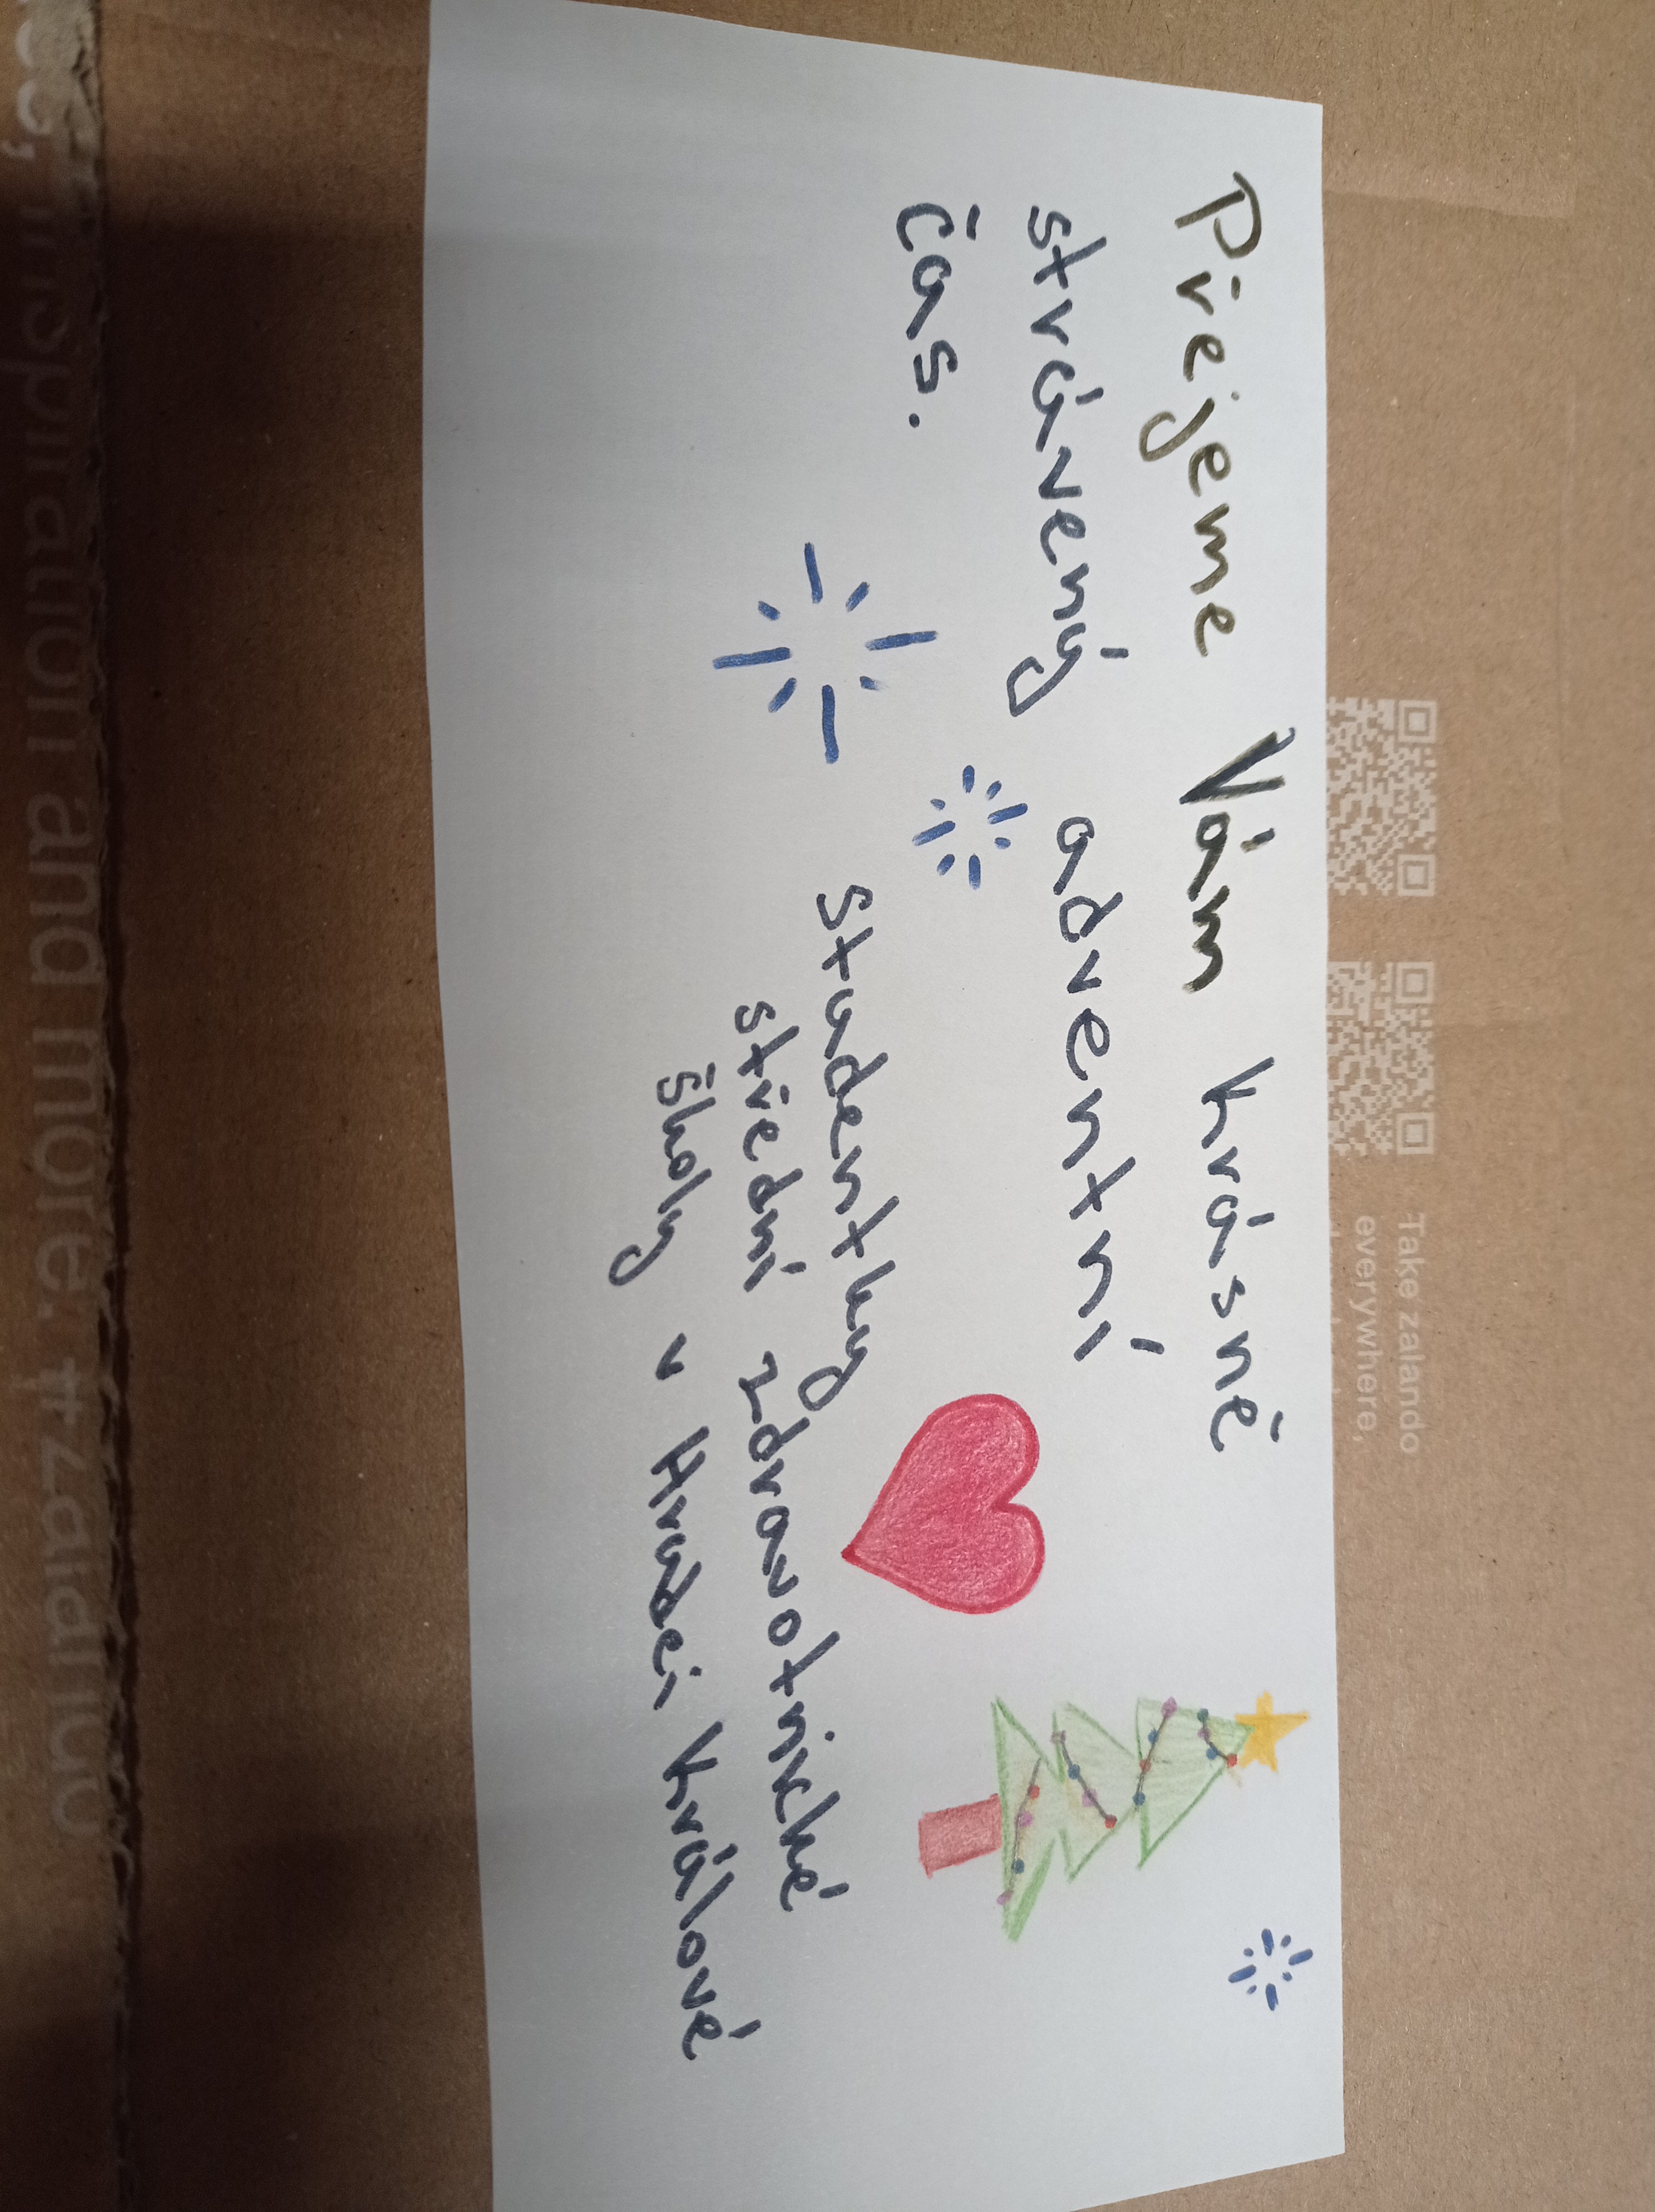 Přejeme Vám krásně
strávený adventní
čas.
Studentky
střední zdravotnické
školy v Hradci Králové
Take zalando
everywhere,
inspiration and more. #zalando